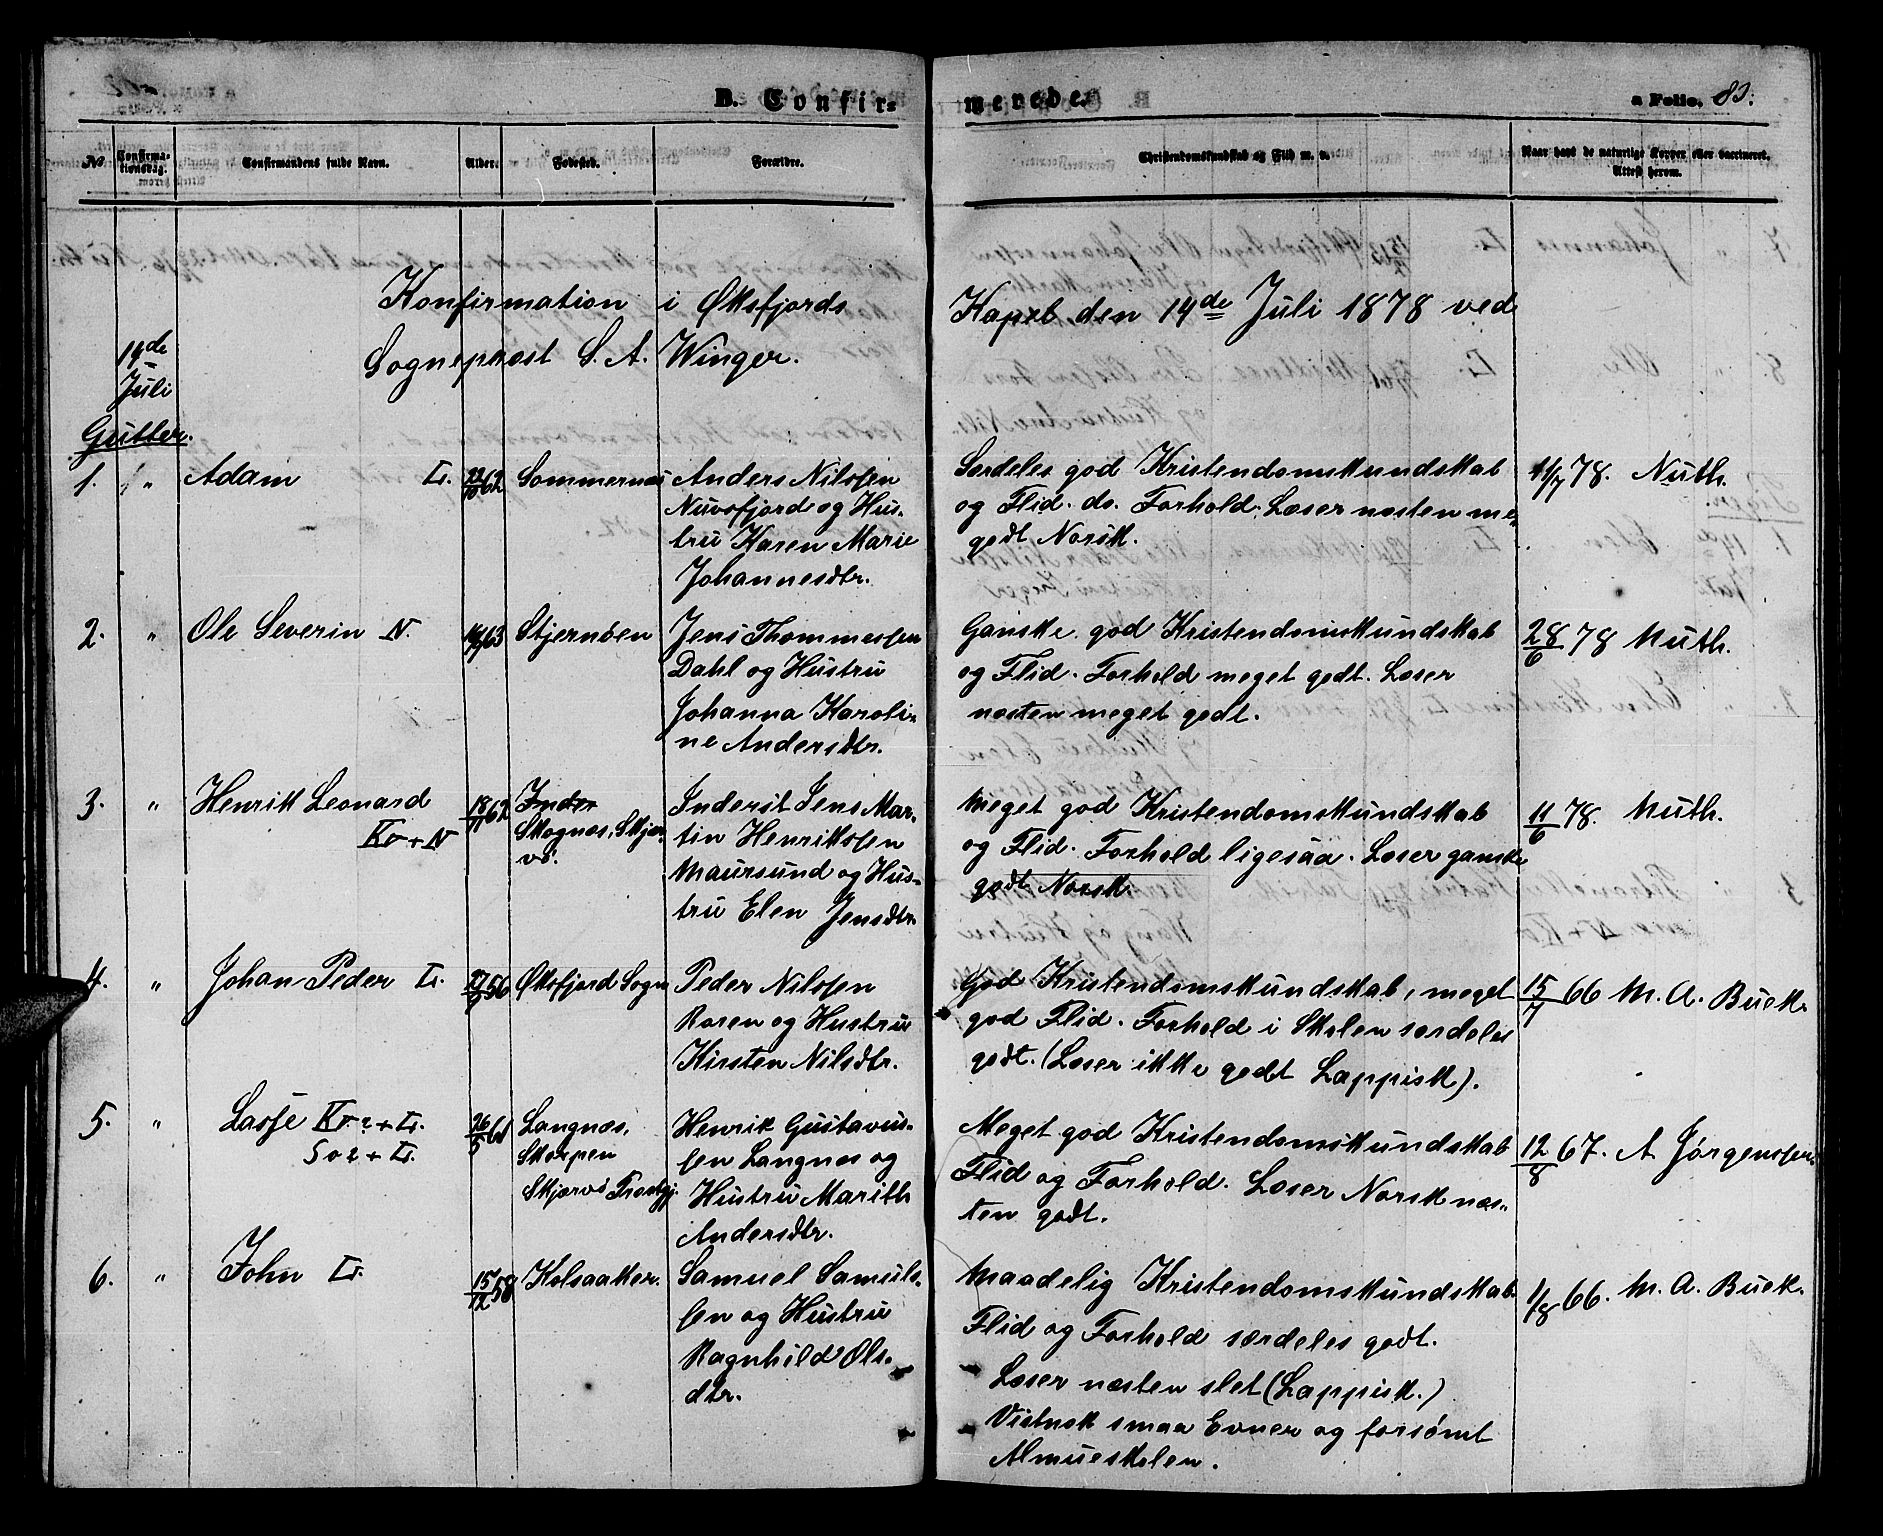 B. Confir=
merede.
a Folio. 83.
No.
Confirma-
tionsdag.
Confirmandens fulde Navn.
Alder.
Fødested.
Forældre.
Christendomskundskab og Flid m. v.
Naar havt de naturlige Kopper eller vaccineret.
Attest herom.
Konfirmation i Øksfjords Kapel den 14de Juli 1878 ved
Sogneprest S. A. Winger.
14de
Juli
Gutter.
1. " Adam L. 62 Sommernæs
Anders Nilssen
Nuvsfjord og Hus-
tru Karen Marie
Johannesdtr.
Særdeles god Kristendomskundskab
og Flid. do. Forhold. Læser næsten me-
get godt Norsk.
11/7 78. Muth.
2. " Ole Severin N. 63 Stjernøen
Jens Thommesen
Dahl og Hustru
Johanna Karoli-
ne Andersdtr.
Ganske god Kristendomskundskab
og Flid. Forhold meget godt. Læser
næsten meget godt.
28/6 78 Muth.
3. " Henrik Leonard
Kv + N
18/11 62
Inder
Skognæs, Skjer-
vø.
Inderst Jens Mar-
tin Henriksen
Maursund og Hus-
tru Elen Jensdtr.
Meget god Kristendomskundskab
og Flid. Forhold ligesaa. Læser ganske
godt Norsk
11/6 78. Muth.
4. " Johan Peder L. 56 Øksfjord Sogn
Peder Nilssen
Roren og Hustru
Kirsten Nilsdtr.
God Kristendomskundskab, meget
god Flid. Forhold i Skolen særdeles
godt. (Læser ikke godt Lappisk).
15/7 66 M. A. Buck.
5. " Lasse Kv? + L.
So? + L.
26/5 61
Langnæs,
Skorpen
Skjærvø Prestgj.
Henrik Gustavus-
sen Langnæs og
Hustru Marith
Andersdtr.
Meget god Kristendomskundskab
Flid og Forhold. Læser Norsk næs-
ten godt.
12/8 67. A Jørgenssen.
6. " John L. 15/12 58 Kolsaaker.
Samuel Samuls-
sen og Hustru
Ragnhild Ols-
dtr.
Maadelig Kristendomskundskab.
Flid og Forhold særdeles godt.
Læser næsten slet (Lappisk.)
Vistnok smaa Evner og forsømt
Almueskolen.
1/8 66. M. A. Buck.